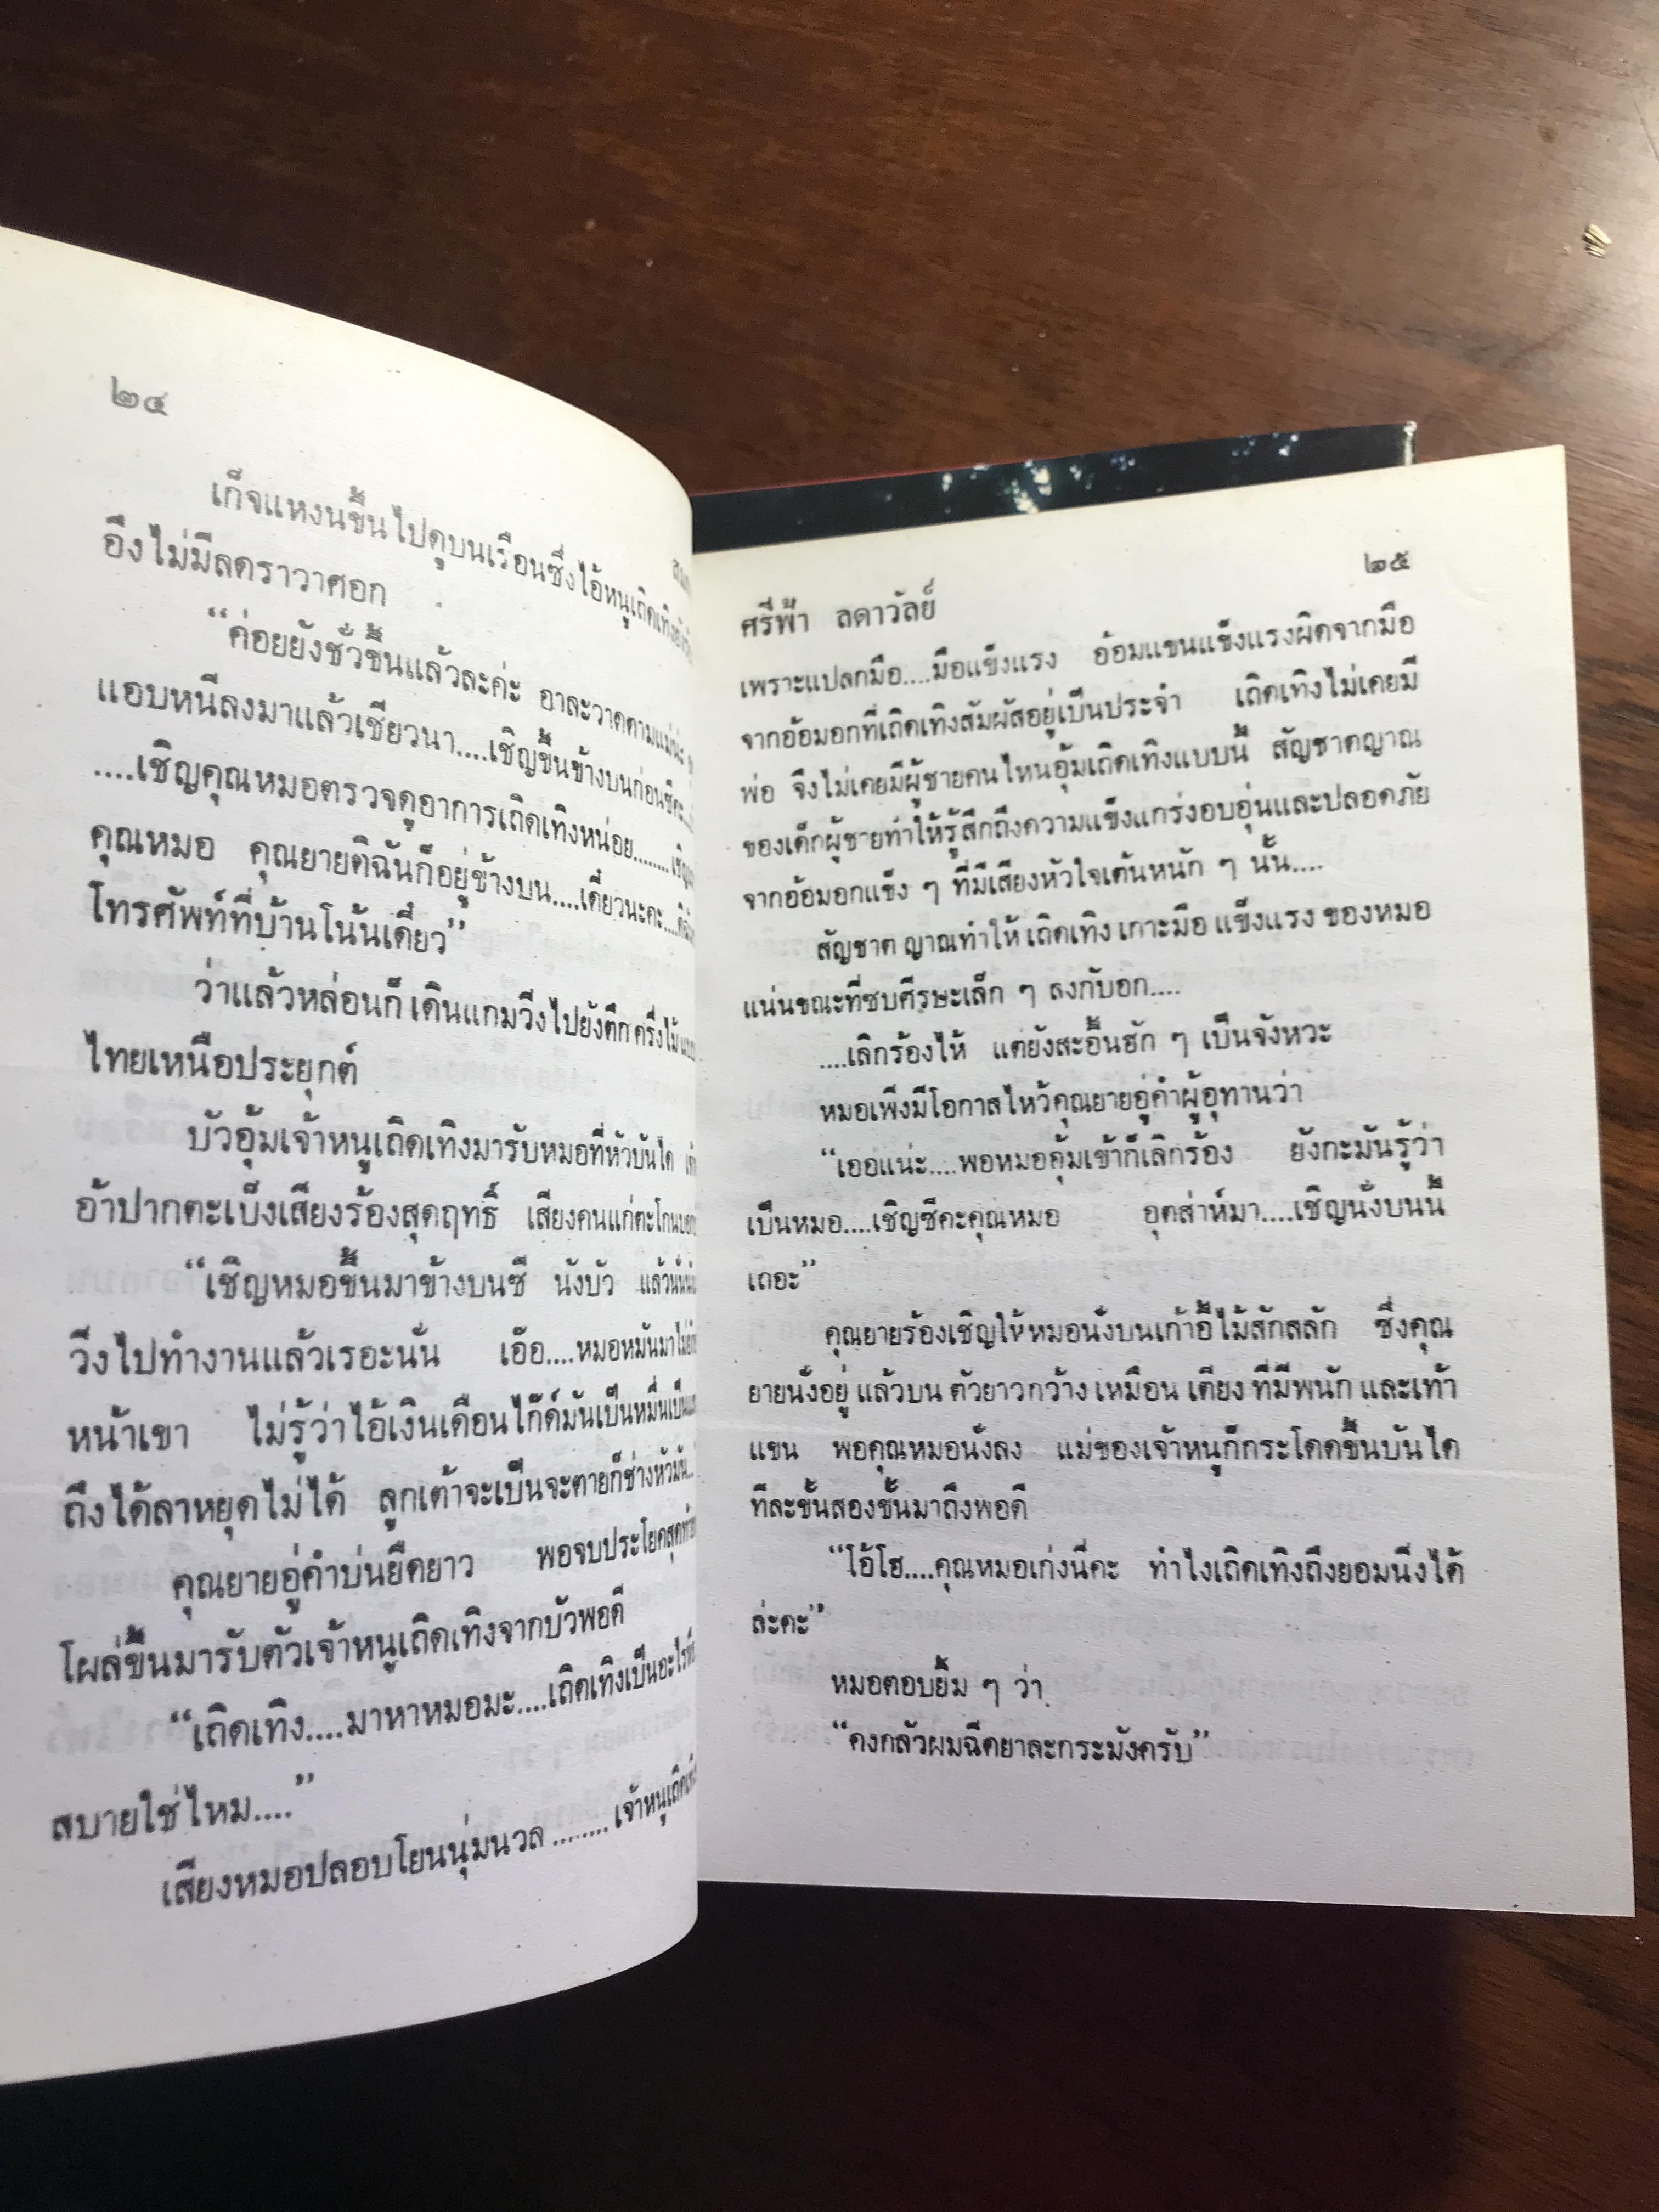 ๒๔
เก็จแหงนขึ้นไปดูบนเรือนซึ่งไอ้หนูเถิดเทิงยัง
อึงไม่มีลดราวาศอก
“ค่อยยังชั่วขึ้นแล้วละค่ะ อาละวาดตามแม่น่ะ
แอบหนีลงมาแล้วเชียวนา....เชิญขึ้นข้างบนก่อนซีคะ....
....เชิญคุณหมอตรวจดูอาการเถิดเทิงหน่อย........เชิญ
คุณหมอ คุณยายดิฉันก็อยู่ข้างบน....เดี๋ยวนะคะ....
โทรศัพท์ที่บ้านโน้นเดี๋ยว”
ว่าแล้วหล่อนก็เดินแกมวิ่งไปยังตึกครึ่งไม้
ไทยเหนือประยุกต์
บัวอุ้มเจ้าหนูเถิดเทิงมารับหมอที่หัวบันได
อ้าปากตะเบ็งเสียงร้องสุดฤทธิ์ เสียงคนแก่ตะโกน
“เชิญหมอขึ้นมาข้างบนซี นังบัว
วิ่งไปทำงานแล้วเรอะนั่น เอ๊อ....หมอหมันมา
หน้าเขา ไม่รู้ว่าไอ้เงินเดือนไก๊ด์มันเป็นหมื่น
ถึงได้ลาหยุดไม่ได้ ลูกเต้าจะเป็นจะตายก็ช่างหัวมัน
คุณยายอู่คำบ่นยืดยาว พอจบประโยคสุดท้าย
โผล่ขึ้นมารับตัวเจ้าหนูเถิดเทิงจากบัวพอดี
“เถิดเทิง....มาหาหมอมะ....เถิดเทิงเป็นอะไร
สบายใช่ไหม....”
เสียงหมอปลอบโยนนุ่มนวล........เจ้าหนู
ศรีฟ้า ลดาวัลย์ ๒๕
เพราะแปลกมือ....มือแข็งแรง อ้อมแขนแข็งแรงผิดจากมือ
จากอ้อมอกที่เถิดเทิงสัมผัสอยู่เป็นประจำ เถิดเทิงไม่เคยมี
พ่อ จึงไม่เคยมีผู้ชายคนไหนอุ้มเถิดเทิงแบบนี้ สัญชาตญาณ
ของเด็กผู้ชายทำให้รู้สึกถึงความแข็งแกร่งอบอุ่นและปลอดภัย
จากอ้อมอกแข็ง ๆ ที่มีเสียงหัวใจเต้นหนัก ๆ นั้น....
สัญชาตญาณทำให้เถิดเทิงเกาะมือแข็งแรงของหมอ
แน่นขณะที่ซบศีรษะเล็ก ๆ ลงกับอก....
....เลิกร้องไห้ แต่ยังสะอื้นฮัก ๆ เป็นจังหวะ
หมอเพิ่งมีโอกาสไหว้คุณยายอู่คำผู้อุทานว่า
“เออแน่ะ....พอหมออุ้มเข้าก็เลิกร้อง ยังกะมันรู้ว่า
เป็นหมอ....เชิญซีคะคุณหมอ อุตส่าห์มา....เชิญนั่งบนนี้
เถอะ”
คุณยายร้องเชิญให้หมอนั่งบนเก้าอี้ไม้สักสลัก ซึ่งคุณ
ยายนั่งอยู่แล้วบนตัวยาวกว้างเหมือนเตียงที่มีพนักและเท้า
แขน พอคุณหมอนั่งลง แม่ของเจ้าหนูก็กระโดดขึ้นบันได
ทีละขั้นสองขั้นมาถึงพอดี
“โอ้โฮ....คุณหมอเก่งนี่คะ ทำไงเถิดเทิงถึงยอมนิ่งได้
ล่ะคะ”
หมอตอบยิ้ม ๆ ว่า
“คงกลัวผมฉีดยาละกระมังครับ”